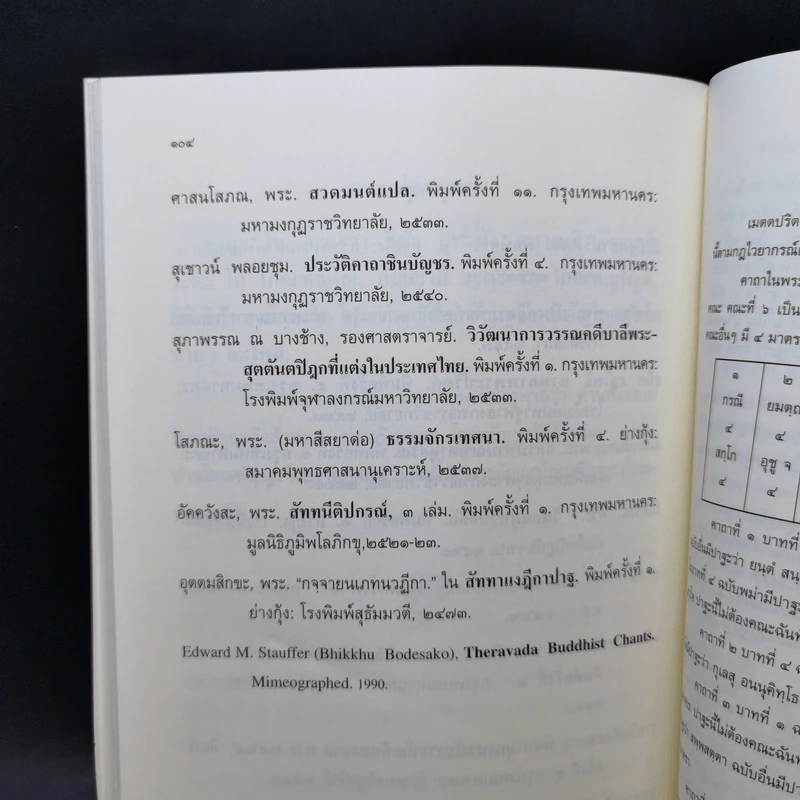 ๑๐๔
ศาสนโสภณ, พระ. สวดมนต์แปล. พิมพ์ครั้งที่ ๑๑. กรุงเทพมหานคร:
มหามงกุฏราชวิทยาลัย, ๒๕๓๓.
สุเชาวน์ พลอยชุม. ประวัติคาถาชินบัญชร. พิมพ์ครั้งที่ ๔. กรุงเทพมหานคร:
มหามงกุฏราชวิทยาลัย, ๒๕๔๐.
สุภาพรรณ ณ บางช้าง, รองศาสตราจารย์. วิวัฒนาการวรรณคดีบาลีพระ-
สุตตันตปิฎกที่แต่งในประเทศไทย. พิมพ์ครั้งที่ ๑. กรุงเทพมหานคร:
โรงพิมพ์จุฬาลงกรณ์มหาวิทยาลัย, ๒๕๓๓.
โสภณะ, พระ. (มหาสีสยาด่อ) ธรรมจักรเทศนา. พิมพ์ครั้งที่ ๔. ย่างกุ้ง:
สมาคมพุทธศาสนานุเคราะห์, ๒๕๓๗.
อัคควังสะ, พระ. สัททนีติปกรณ์, ๓ เล่ม. พิมพ์ครั้งที่ ๑. กรุงเทพมหานคร:
มูลนิธิภูมิพโลภิกขุ,๒๕๒๑-๒๓.
อุตตมสิกขะ, พระ. “กจฺจายนเภทนวฎีกา.” ใน สัททาแงฎีกาปาฐ. พิมพ์ครั้งที่ ๑.
ย่างกุ้ง: โรงพิมพ์สุธัมมวตี, ๒๔๗๓.
Edward M. Stauffer (Bhikkhu Bodesako), Theravada Buddhist Chants.
Mimeographed. 1990.
เมตตปริต
นี้ตามกฎไวยากรณ์
คาถาในพระ
คณะ คณะที่ ๖ เป็น
คณะอื่นๆ มี ๔ มาตร
๑ ๒
กรณี ยมตฺถ
๔ ๔
สกฺโก อุชู จ
๔ ๔
คาถาที่ ๑ บาทที่
ฉบับอื่นมีปาฐะว่า ยนฺตํ สนฺ
บาทที่ ๔ ฉบับพม่ามีปาฐะ
ปาฐะนี้ไม่ต้องคณะฉันท
คาถาที่ ๒ บาทที่ ๔ ฉ
ปาฐะว่า กุเลสุ อนนุคิทฺโธ
คาถาที่ ๓ บาทที่ ๑ ฉ
ปาฐะนี้ไม่ต้องคณะฉันท
สพฺพสตฺตา ฉบับอื่นมีปา